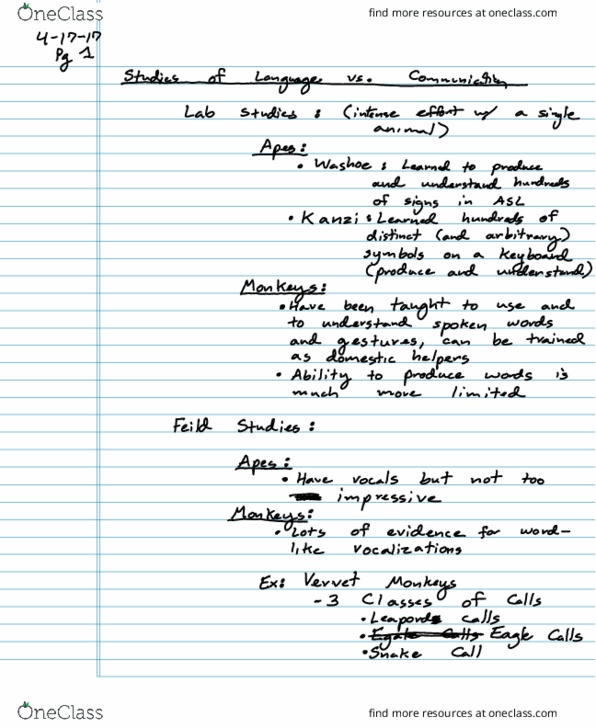 OneClass
find more resources at oneclass.com
4-17-17
Pg 1
Studies of Language vs. Communication
Lab Studies : (intense effort w/ a single
animal)
Apes:
• Washoe : Learned to produce
and understand hundreds
of signs in ASL
• Kanzi : Learned hundreds of
distinct (and arbitrary)
symbols on a keyboard
(produce and understand)
Monkeys:
• Have been taught to use and
to understand spoken words
and gestures, can be trained
as domestic helpers
• Ability to produce words is
much more limited
Feild Studies :
Apes:
• Have vocals but not too
impressive
Monkeys:
• Lots of evidence for word-
like vocalizations
Ex: Vervet Monkeys
- 3 Classes of Calls
• Leapords calls
• Eagle Calls
• Snake Call
OneClass
find more resources at oneclass.com